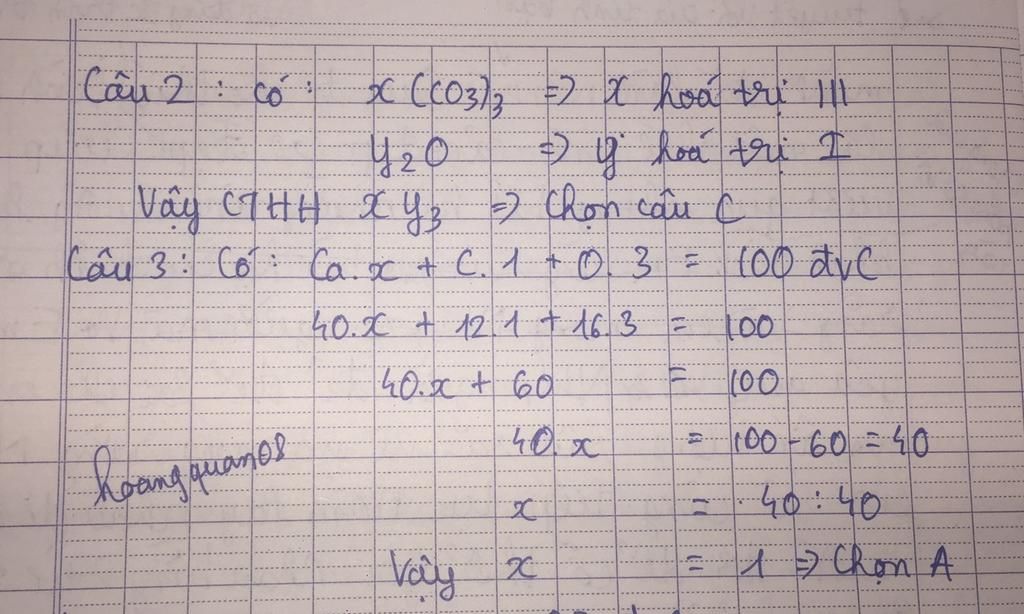 Câu 2 : Có : x (CO3)3 => x hoá trị III
y2O => y hoá trị I
Vậy CTHH x y3 => Chọn câu C
Câu 3 : Có : Ca.x + C.1 + O.3 = 100 đvC
40.x + 12.1 + 16.3 = 100
40.x + 60 = 100
40.x = 100 - 60 = 40
hoangquan08
x = 40 : 40
Vậy x = 1 => Chọn A